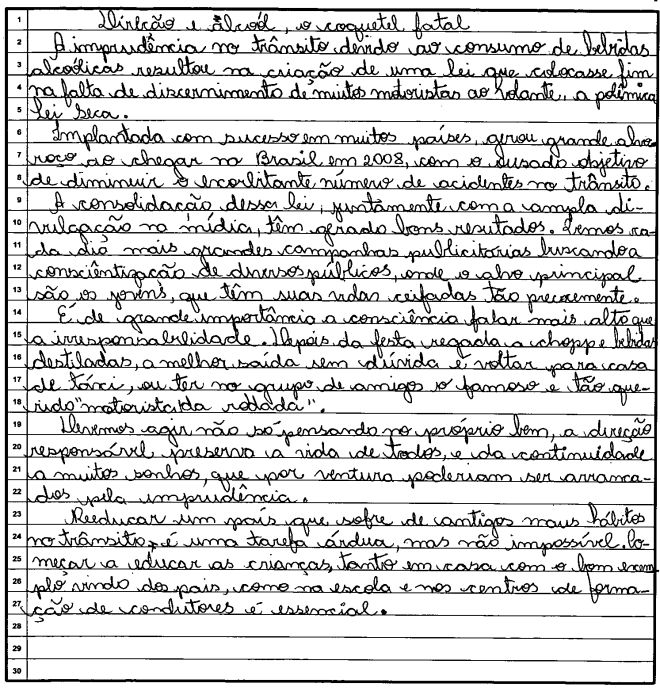 Direção e álcool, o coquetel fatal
A imprudência no trânsito devido ao consumo de bebidas
alcoólicas resultou na criação de uma lei que colocasse fim
na falta de discernimento de muitos motoristas ao volante, a polêmica
lei seca.
Implantada com sucesso em muitos países, gerou grande alvo-
roço ao chegar no Brasil em 2008, com o ousado objetivo
de diminuir o exorbitante número de acidentes no trânsito.
A consolidação dessa lei, juntamente com a ampla di-
vulgação na mídia, têm gerado bons resultados. Temos ca-
da dia mais grandes campanhas publicitárias buscando a
conscientização de diversos públicos, onde o alvo principal
são os jovens, que têm suas vidas ceifadas tão precocemente.
É de grande importância a consciência falar mais alto que
a irresponsabilidade. Depois da festa regada a chopp e bebidas
destiladas, a melhor saída sem dúvida é voltar para casa
de táxi, ou ter no grupo de amigos o famoso e tão que-
rido "motorista da rodada".
Devemos agir não só pensando no próprio bem, a direção
responsável preserva a vida de todos, e da continuidade
a muitos sonhos, que por ventura poderiam ser arranca-
dos pela imprudência.
Reeducar um país que sofre de antigos maus hábitos
no trânsito, é uma tarefa árdua, mas não impossível. Co-
meçar a educar as crianças, tanto em casa com o bom exem
plo vindo dos pais, como na escola e nos centros de forma-
ção de condutores é essencial.